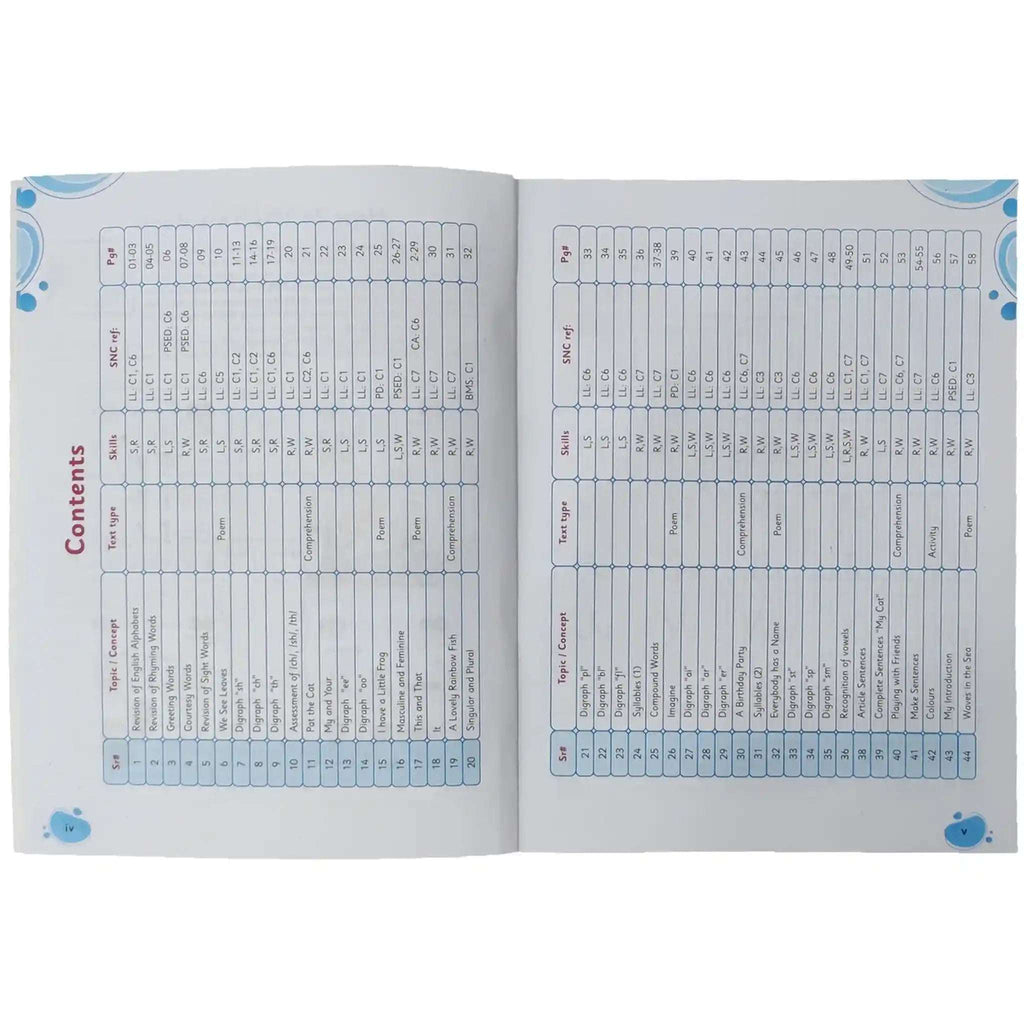 Contents
Sr# Topic / Concept Text type Skills SNC ref: Pg#
1 Revision of English Alphabets S,R LL: C1, C6 01-03
2 Revision of Rhyming Words S,R LL: C1 04-05
3 Greeting Words L,S LL: C1 PSED: C6 06
4 Courtesy Words R,W LL: C1 PSED: C6 07-08
5 Revision of Sight Words S,R LL: C6 09
6 We See Leaves Poem L,S LL: C5 10
7 Digraph "sh" S,R LL: C1, C2 11-13
8 Digraph "ch" S,R LL: C1, C2 14-16
9 Digraph "th" S,R LL: C1, C6 17-19
10 Assessment of /ch/, /sh/, /th/ R,W LL: C1 20
11 Pat the Cat Comprehension R,W LL: C2, C6 21
12 My and Your S,R LL: C1 22
13 Digraph "ee" L,S LL: C1 23
14 Digraph "oo" L,S LL: C1 24
15 I have a Little Frog Poem L,S PD: C1 25
16 Masculine and Feminine L,S,W PSED: C1 26-27
17 This and That Poem R,W LL: C7 CA: C6 2-29
18 It R,W LL: C7 30
19 A Lovely Rainbow Fish Comprehension R,W LL: C7 31
20 Singular and Plural R,W BMS, C1 32
iv
Sr# Topic / Concept Text type Skills SNC ref: Pg#
21 Digraph "pl" L,S LL: C6 33
22 Digraph "bl" L,S LL: C6 34
23 Digraph "fl" L,S LL: C6 35
24 Syllables (1) R,W LL: C7 36
25 Compound Words R,W LL: C7 37-38
26 Imagine Poem R,W PD: C1 39
27 Digraph "ai" L,S,W LL: C6 40
28 Digraph "ar" L,S,W LL: C6 41
29 Digraph "er" L,S,W LL: C6 42
30 A Birthday Party Comprehension R,W LL: C6, C7 43
31 Syllables (2) R,W LL: C3 44
32 Everybody has a Name Poem R,W LL: C3 45
33 Digraph "st" L,S,W LL: C6 46
34 Digraph "sp" L,S,W LL: C6 47
35 Digraph "sm" L,S,W LL: C6 48
36 Recognition of vowels L,R,S,W LL: C1, C7 49-50
38 Article Sentences R, W LL: C1, C7 51
39 Complete Sentences "My Cat" L,S LL: C7 52
40 Playing with Friends Comprehension R,W LL: C6, C7 53
41 Make Sentences R,W LL: C7 54-55
42 Colours Activity R,W LL: C6 56
43 My Introduction R,W PSED: C1 57
44 Waves in the Sea Poem R,W LL: C3 58
v